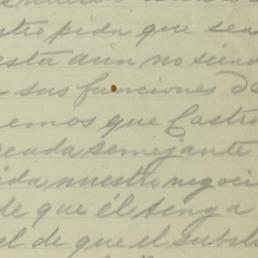 tro pida que sea
está aún no siend
a sus funciones de
emos que Castro
semejante
ida nuestro negoci
de que él tenga
el de que el substi